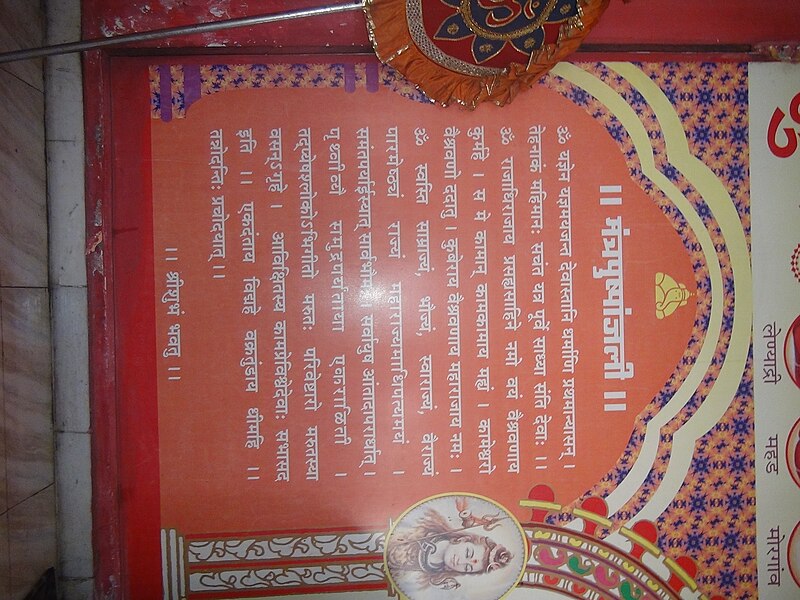 ।। मंत्रपुष्पांजली ।।
ॐ यज्ञेन यज्ञमयजन्त देवास्तानि धर्माणि प्रथमान्यासन् ।
तेहनाकं महिमानः सचंत यत्र पूर्वे साध्या संति देवाः ।।
ॐ राजाधिराजाय प्रसह्यसाहिने नमो वयं वैश्रवणाय
कुर्महे । स मे कामान् कामकामाय मह्यं । कामेश्वरो
वैश्रवणो ददातु । कुबेराय वैश्रवणाय महाराजाय नमः ।
ॐ स्वस्ति साम्राज्यं, भौज्यं, स्वाराज्यं, वैराज्यं
पारमेष्ठ्यं राज्यं महाराज्यमाधिपत्यमयं ।
समंतपर्यायिस्यात् सार्वभौमः सार्वायुष आंतादापरार्धात् ।
समुद्रपर्यंताया एकराळिति ।
तदप्येषश्लोकोऽभिगीतो मरुतः परिवेष्टारो मरुतस्या
वसन्ऽगृहे । आविक्षितस्य कामप्रेर्विश्वेदेवाः सभासद
इति ।। एकदंताय विद्महे वक्रतुंडाय धीमहि ।।
तन्नोदन्तिः प्रचोदयात् ।।
।। श्रीशुभं भवतु ।।
ॐ
लेण्याद्री महड मोरगांव